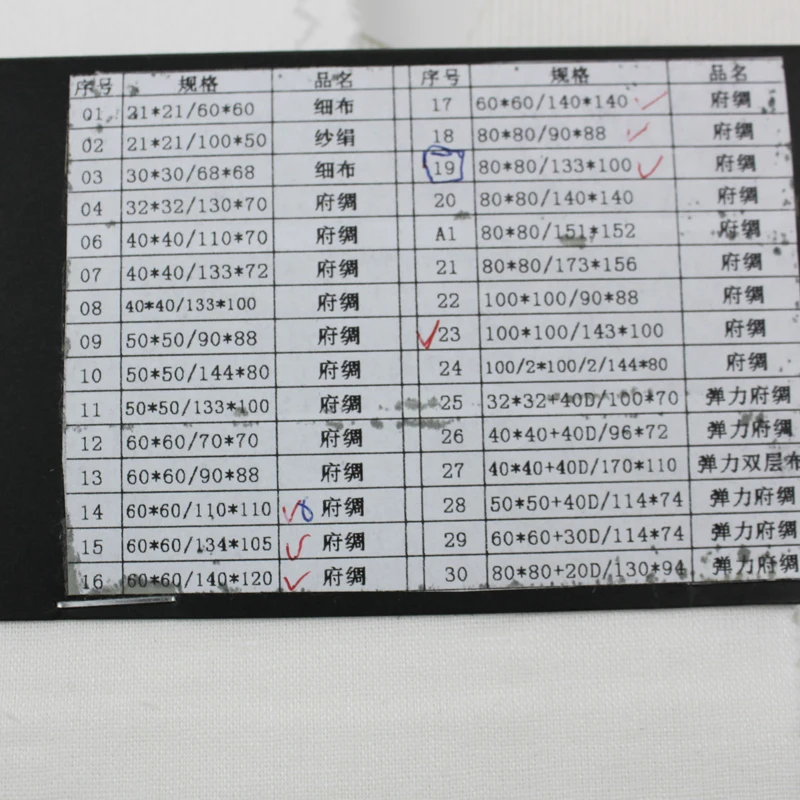 序号 规格 品名 序号 规格 品名
01 21*21/60*60 细布 17 60*60/140*140 府绸
02 21*21/100*50 纱绢 18 80*80/90*88 府绸
03 30*30/68*68 细布 19 80*80/133*100 府绸
04 32*32/130*70 府绸 20 80*80/140*140 府绸
06 40*40/110*70 府绸 A1 80*80/151*152 府绸
07 40*40/133*72 府绸 21 80*80/173*156 府绸
08 40*40/133*100 府绸 22 100*100/90*88 府绸
09 50*50/90*88 府绸 23 100*100/143*100 府绸
10 50*50/144*80 府绸 24 100/2*100/2/144*80 府绸
11 50*50/133*100 府绸 25 32*32+40D/100*70 弹力府绸
12 60*60/70*70 府绸 26 40*40+40D/96*72 弹力府绸
13 60*60/90*88 府绸 27 40*40+40D/170*110 弹力双层布
14 60*60/110*110 府绸 28 50*50+40D/114*74 弹力府绸
15 60*60/134*105 府绸 29 60*60+30D/114*74 弹力府绸
16 60*60/140*120 府绸 30 80*80+20D/130*94 弹力府绸